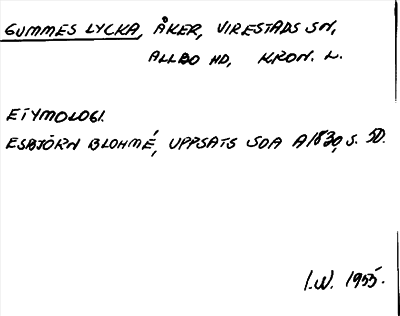 GUMMES LYCKA, ÅKER, VIRESTADS SN,
ALLBO HD, KRON. L.
ETYMOLOGI.
ESBJÖRN BLOHMÉ, UPPSATS SOA A1830, S. 50.
I.W. 1955.